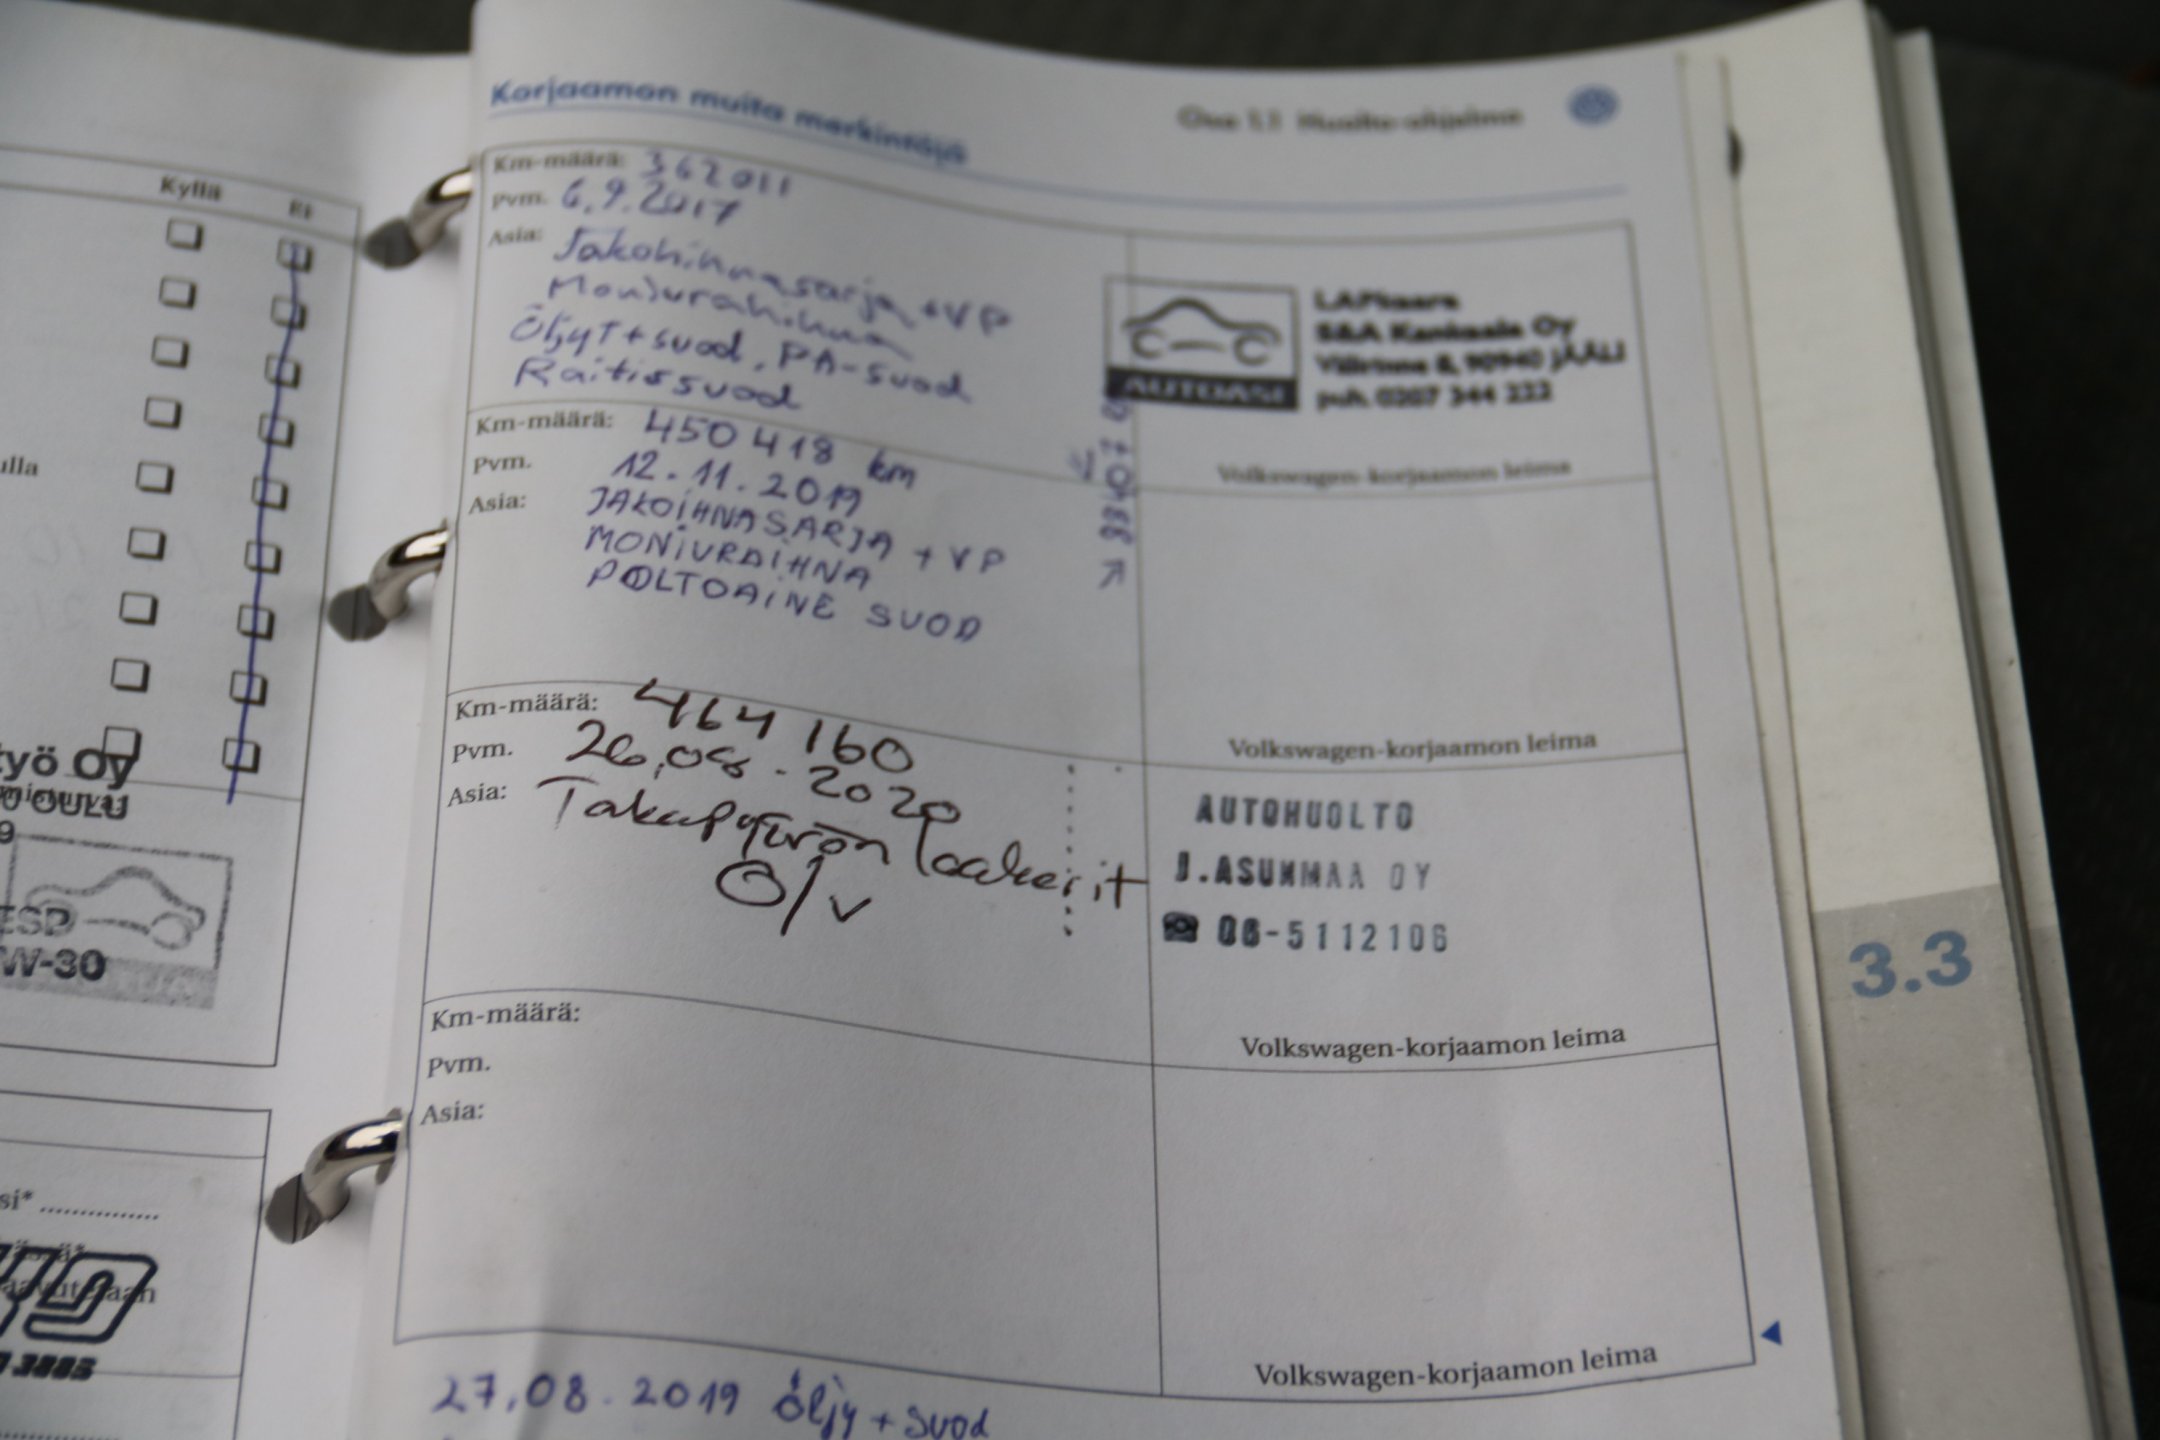 Kyllä
Ei
ulla
työ Oy
OULU
9
ESD
W-30
si*
3885
Korjaamon muita merkintöjä
Osa 1.1 Huolto-ohjelma
Km-määrä: 362011
Pvm. 6.9.2017
Asia: Jakohihnasarja + VP
Moniurahihna
Öljyt + suod, PA-suod
Raitissuod
AUTOASI
S&A Kankaala Oy
90940 JÄÄLI
puh. 0207 344 222
Volkswagen-korjaamon leima
Km-määrä: 450 418 km
Pvm. 12.11.2019
Asia: JAKOIHNASARJA + VP
MONIURAIHNA
POLTOAINE SUOD
Volkswagen-korjaamon leima
Km-määrä: 464 160
Pvm. 26.08.2020
Asia: Takapyörön laakerit
O/v
AUTOHUOLTO
J.ASUNMAA OY
☎ 06-5112106
Volkswagen-korjaamon leima
Km-määrä:
Pvm.
Asia:
Volkswagen-korjaamon leima
27.08.2019 öljy + suod
3.3